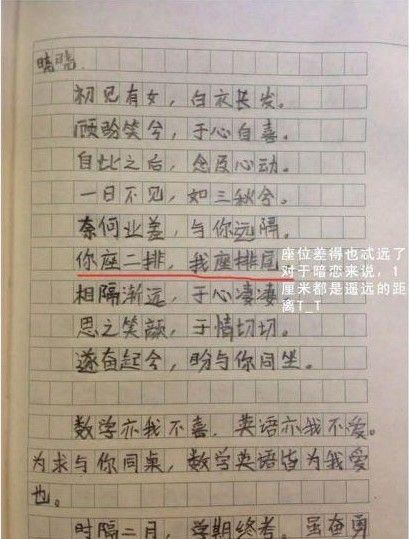 暗暗.
初见有女，白衣长发。
顾盼笑兮，于心自喜。
自此之后，念及心动。
一日不见，如三秋兮。
奈何业差，与你远隔。
你座二排，我座排尾
相隔渐远，于心凄凄
思之笑颜，于情切切。
遂奋起兮，盼与你同坐。
座位差得也忒远了
对于暗恋来说，1
厘米都是遥远的距
离T_T
数学亦我不喜．英语亦我不爱。
为求与你同桌，数学英语皆为我爱
也。
时隔二月，学期终考。虽奋勇